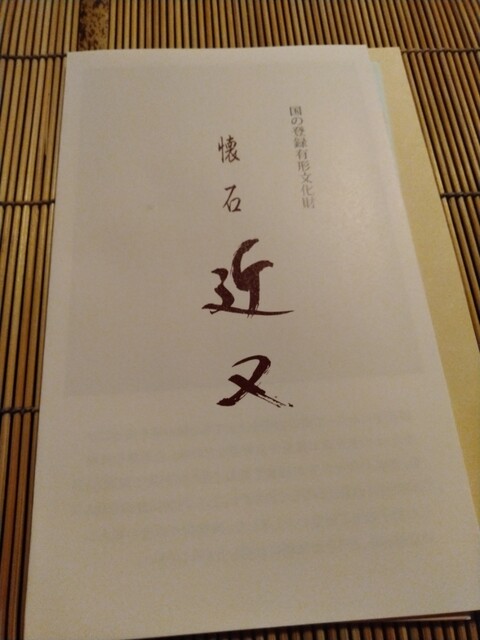 国の登録有形文化財
懐石
近又